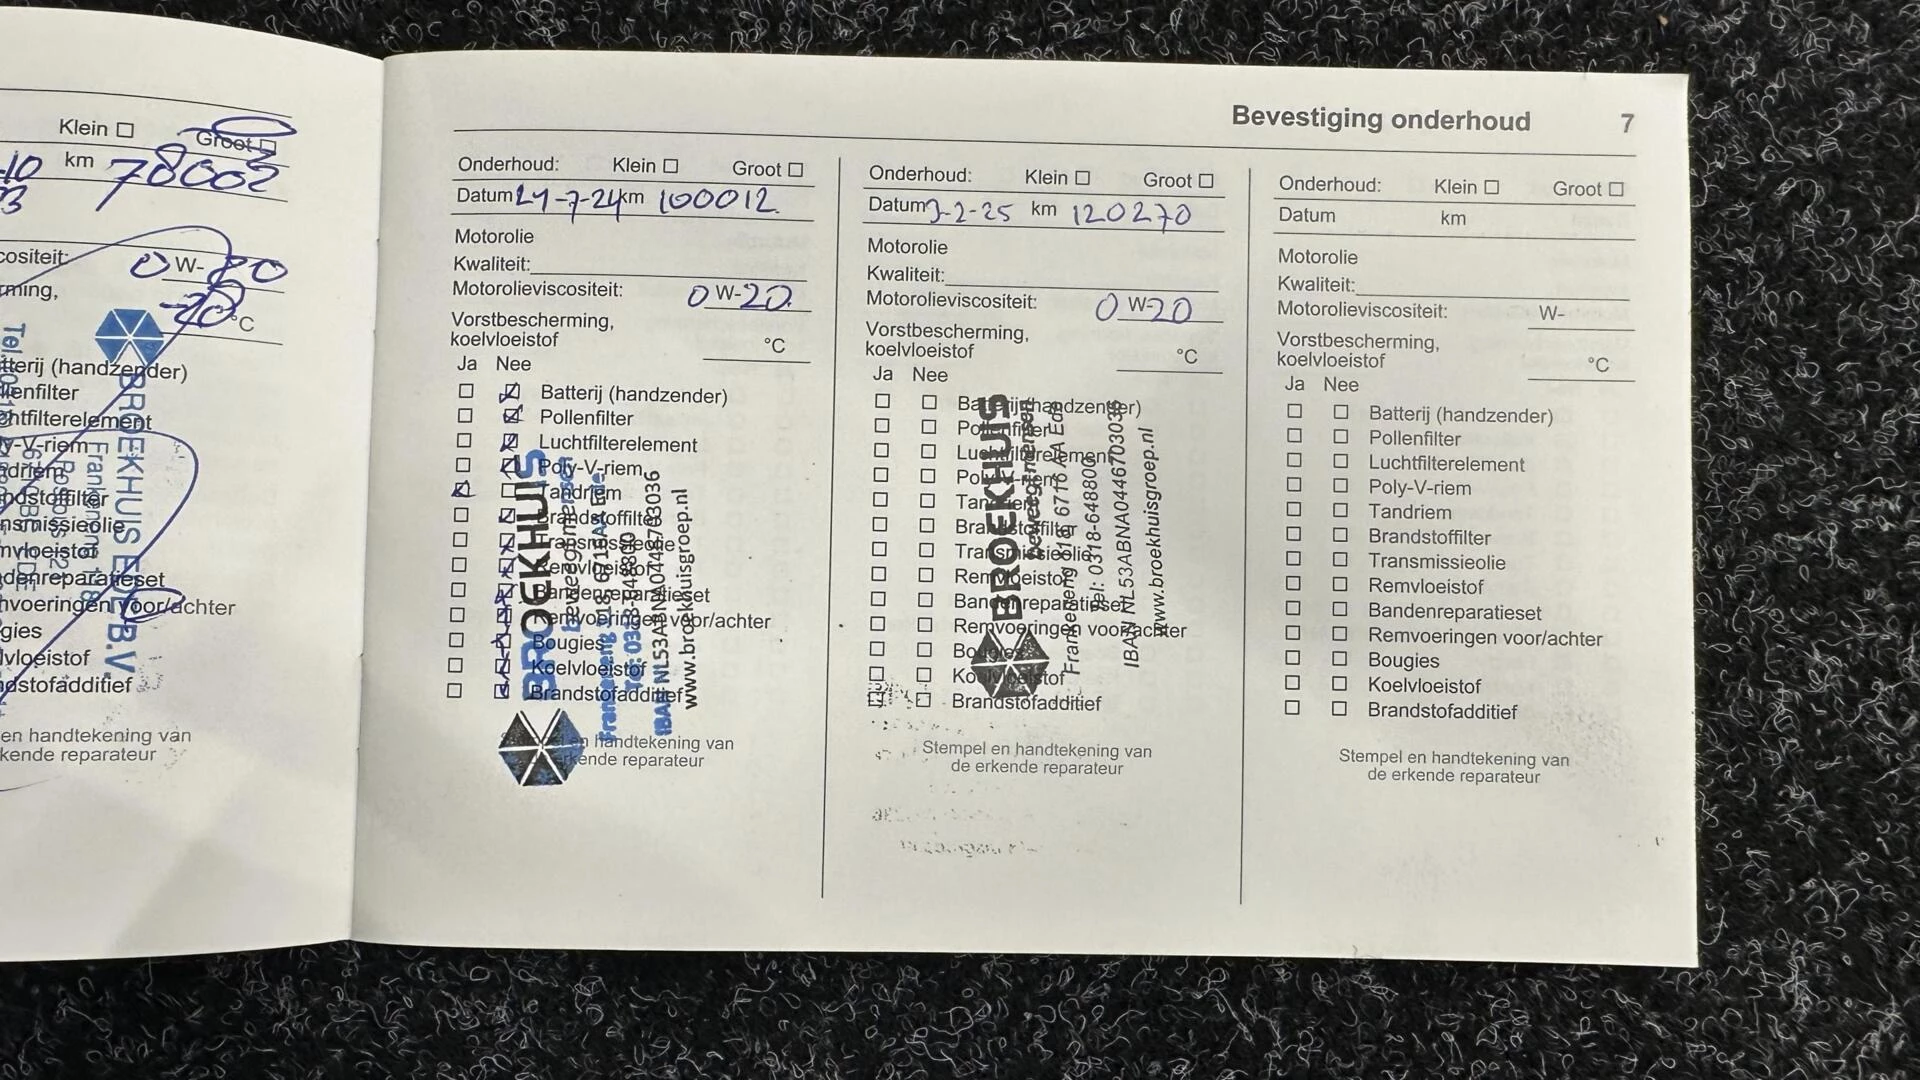 Klein ☐ Groot ☐
-10 km 78002
cositeit: 0 W-20
rming,
-20 °C
tterij (handzender)
llenfilter
chtfilterelement
ly-V-riem
ndriem
ndstoffilter
nsmissieolie
mvloeistof
denreparatieset
mvoeringen voor/achter
gies
lvloeistof
ndstofadditief
en handtekening van
kende reparateur
BROEKHUIS EDE B.V.
Bevestiging onderhoud 7
Onderhoud: Klein ☐ Groot ☐
Datum 24-7-24 km 100012
Motorolie
Kwaliteit:
Motorolieviscositeit: 0 W-20
Vorstbescherming,
koelvloeistof °C
Ja Nee
Batterij (handzender)
Pollenfilter
Luchtfilterelement
Poly-V-riem
Tandriem
Brandstoffilter
Transmissieolie
Remvloeistof
Bandenreparatieset
Remvoeringen voor/achter
Bougies
Koelvloeistof
Brandstofadditief
en handtekening van
erkende reparateur
BROEKHUIS
IBAN NL53ABNA0446703036
www.broekhuisgroep.nl
Onderhoud: Klein ☐ Groot ☐
Datum 3-2-25 km 120270
Motorolie
Kwaliteit:
Motorolieviscositeit: 0 W-20
Vorstbescherming,
koelvloeistof °C
Ja Nee
Batterij (handzender)
Pollenfilter
Luchtfilterelement
Poly-V-riem
Tandriem
Brandstoffilter
Transmissieolie
Remvloeistof
Bandenreparatieset
Remvoeringen voor/achter
Bougies
Koelvloeistof
Brandstofadditief
Stempel en handtekening van
de erkende reparateur
BROEKHUIS
beweegt mensen
Frankeneng 18 6716 AA Ede
Tel: 0318-648800
IBAN NL53ABNA0446703036
www.broekhuisgroep.nl
Onderhoud: Klein ☐ Groot ☐
Datum km
Motorolie
Kwaliteit:
Motorolieviscositeit: W-
Vorstbescherming,
koelvloeistof °C
Ja Nee
Batterij (handzender)
Pollenfilter
Luchtfilterelement
Poly-V-riem
Tandriem
Brandstoffilter
Transmissieolie
Remvloeistof
Bandenreparatieset
Remvoeringen voor/achter
Bougies
Koelvloeistof
Brandstofadditief
Stempel en handtekening van
de erkende reparateur